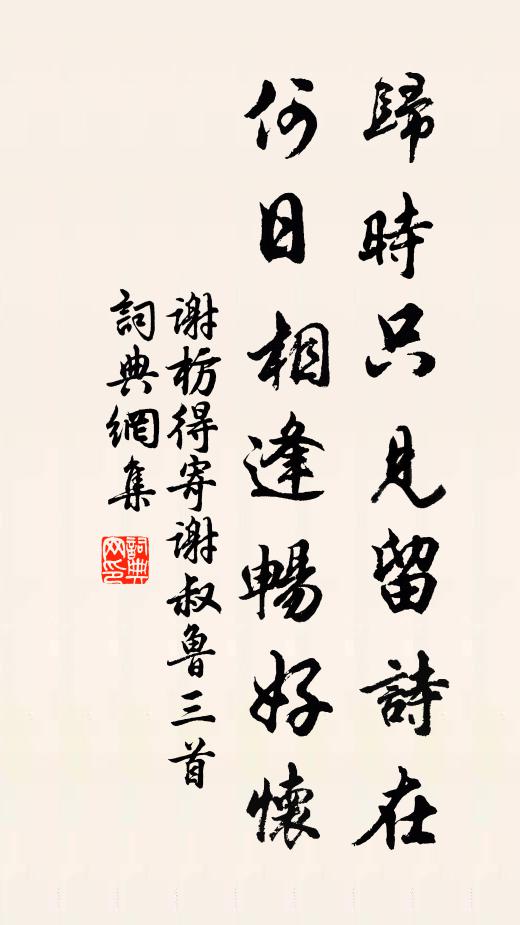 歸時只見留詩在
何日相逢暢好懷
谢枋得寄谢叔鲁三首
詞典網集
詞典网印